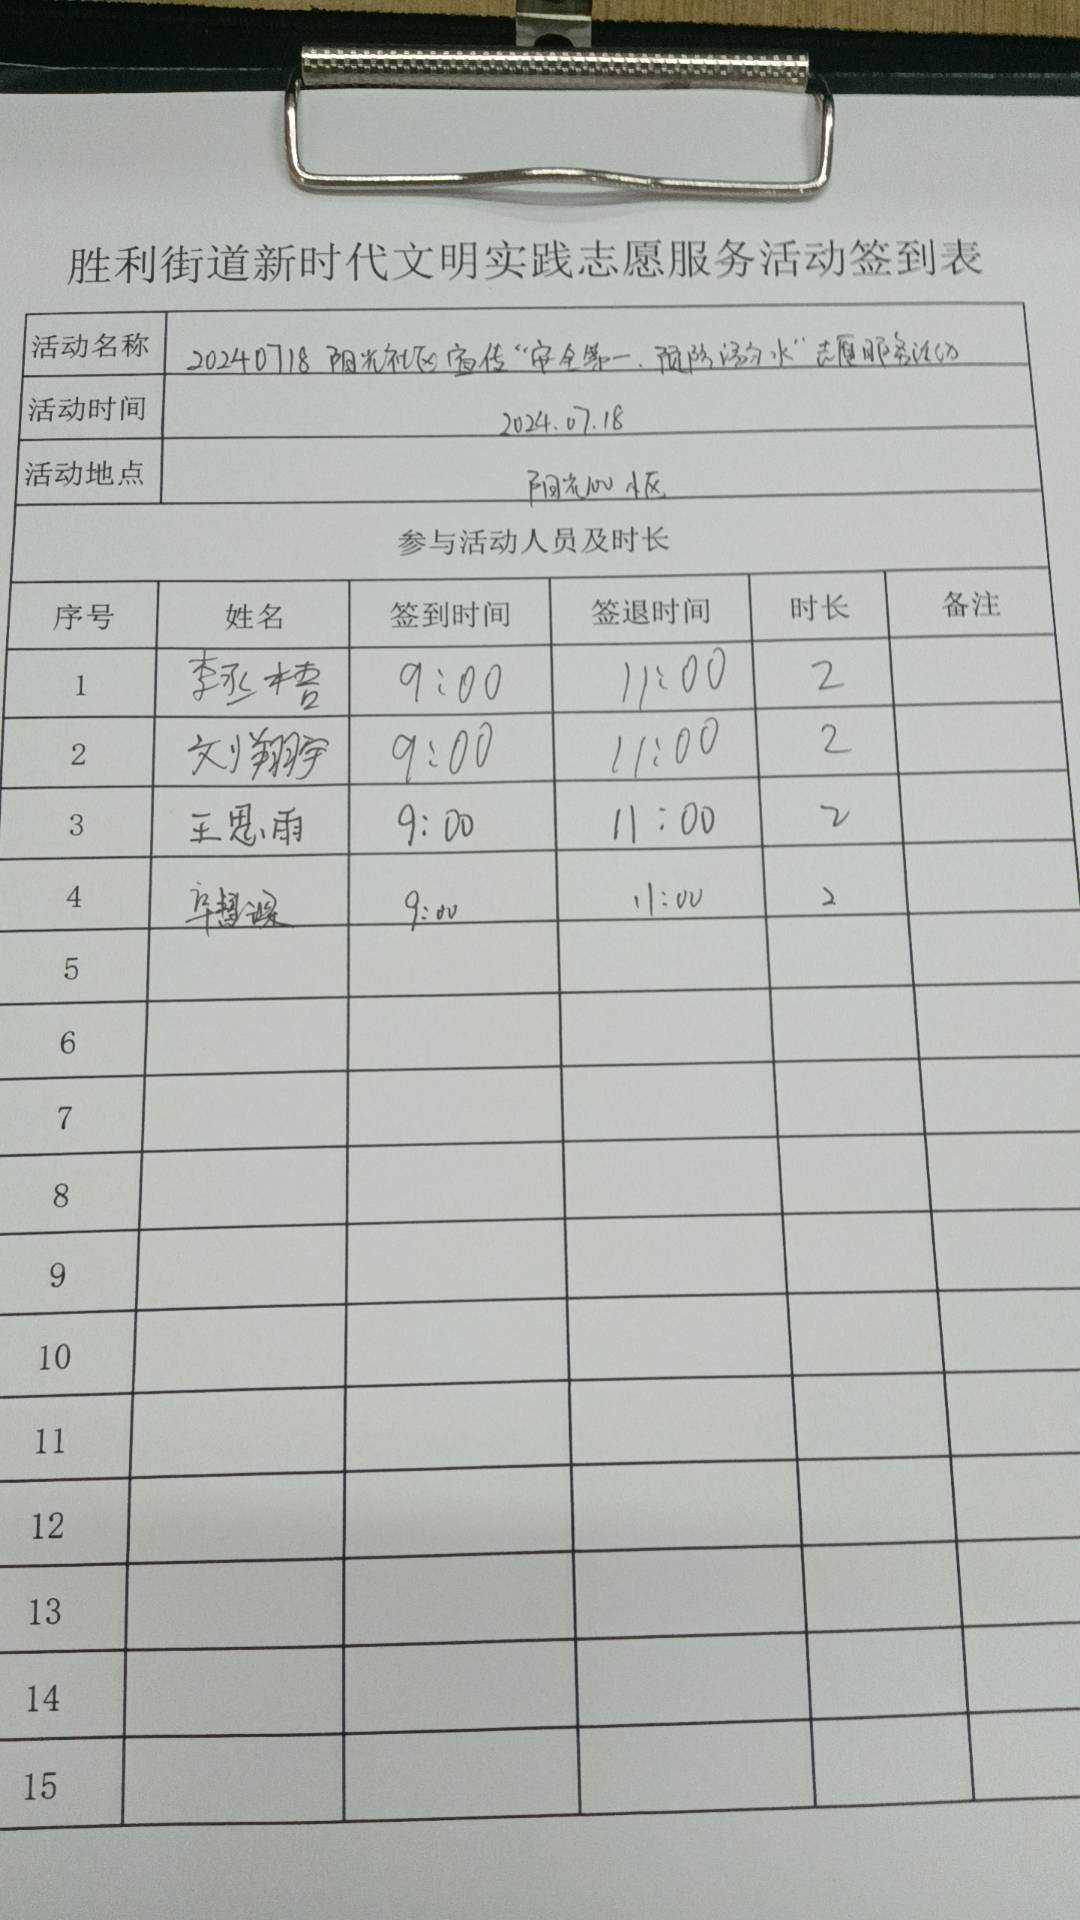 胜利街道新时代文明实践志愿服务活动签到表
活动名称 20240718 阳光社区宣传“安全第一.预防溺水”志愿服务活动
活动时间 2024.07.18
活动地点 阳光100小区
参与活动人员及时长
序号 姓名 签到时间 签退时间 时长 备注
1 李丞梧 9:00 11:00 2
2 刘翔宇 9:00 11:00 2
3 王思雨 9:00 11:00 2
4 9:00 11:00 2
5
6
7
8
9
10
11
12
13
14
15